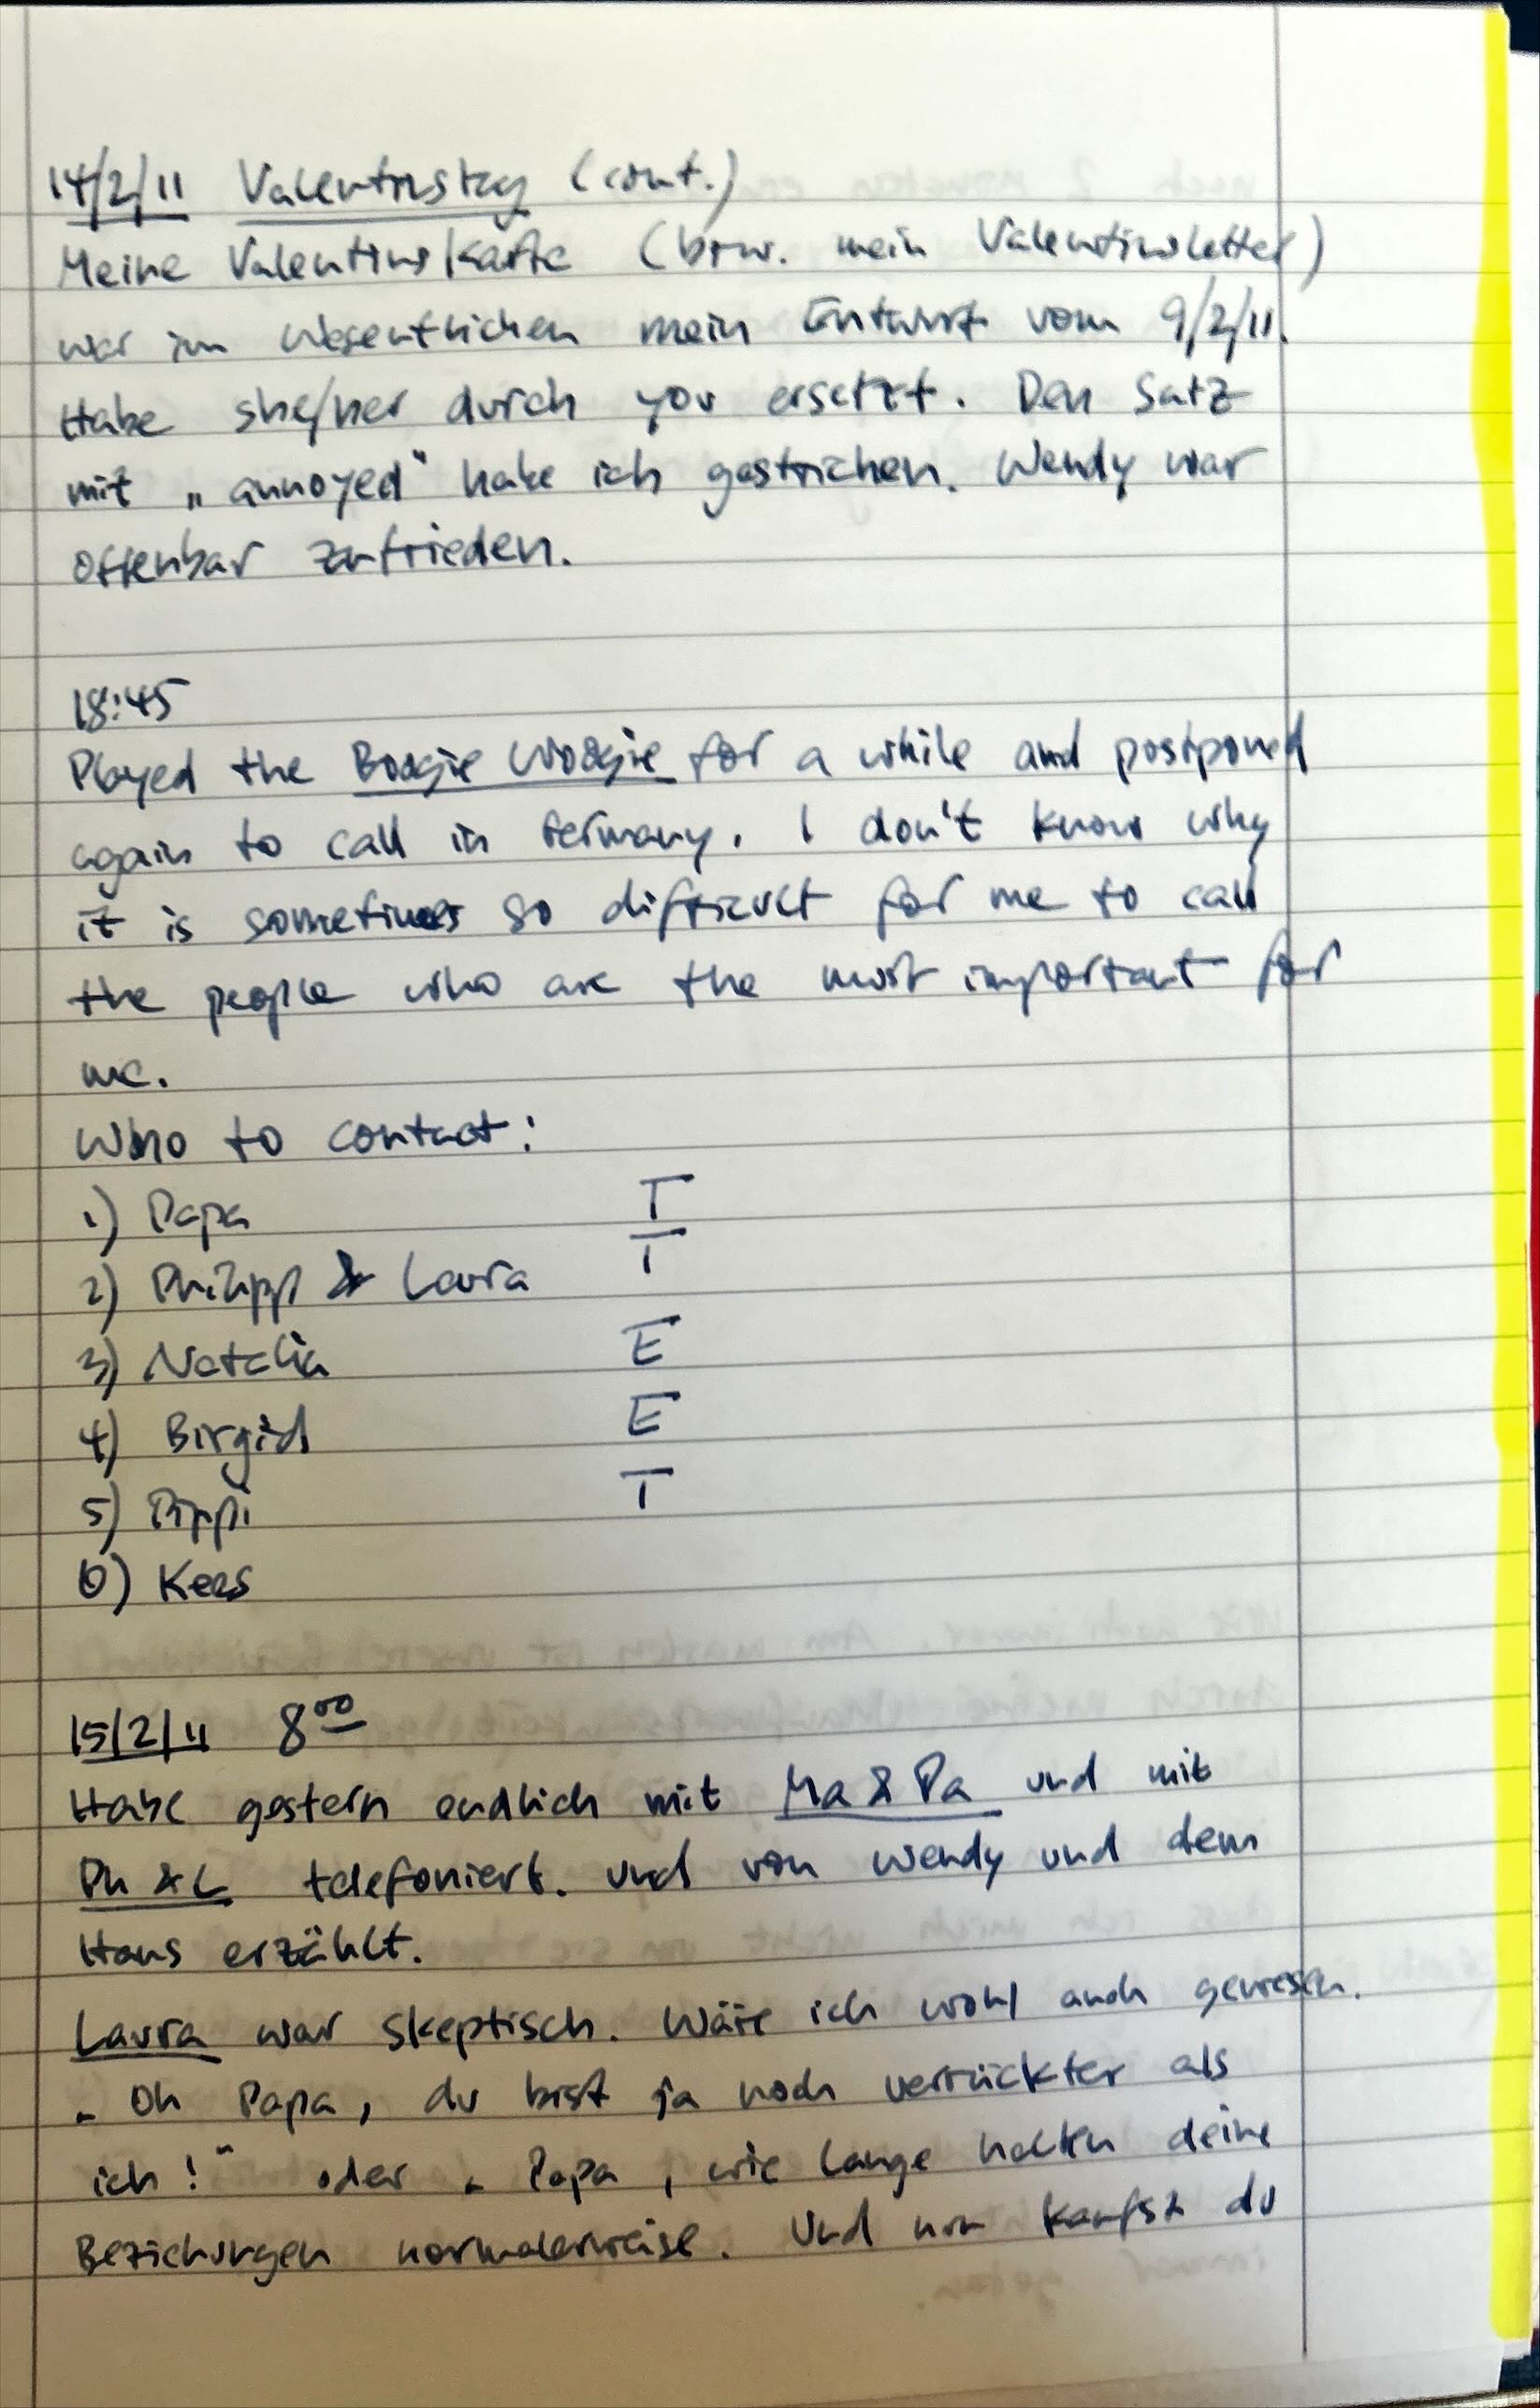 14/2/11 Valentinstag (cont.)
Meine Valentinskarte (bzw. mein Valentinsletter)
war im Wesentlichen mein Entwurf vom 9/2/11.
Habe she/her durch you ersetzt. Den Satz
mit „annoyed" habe ich gestrichen. Wendy war
offenbar zufrieden.
18:45
Played the Boogie Woogie for a while and postponed
again to call in Germany. I don't know why
it is sometimes so difficult for me to call
the people who are the most important for
me.
Who to contact:
1) Papa T
2) Philipp & Laura T
3) Natalia E
4) Birgid E
5) Pippi T
6) Kees
15/2/11 8⁰⁰
Habe gestern endlich mit Ma & Pa und mit
Ph & L telefoniert. Und von Wendy und dem
Haus erzählt.
Laura war skeptisch. Wäre ich wohl auch gewesen.
„Oh Papa, du bist ja noch verrückter als
ich!" oder „Papa, wie lange halten deine
Beziehungen normalerweise. Und nun kaufst du